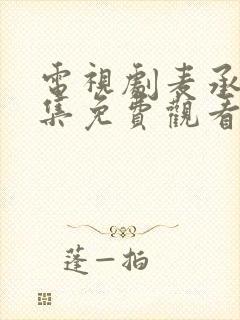 電視劇麦承
集免費觀看
蓬一拍